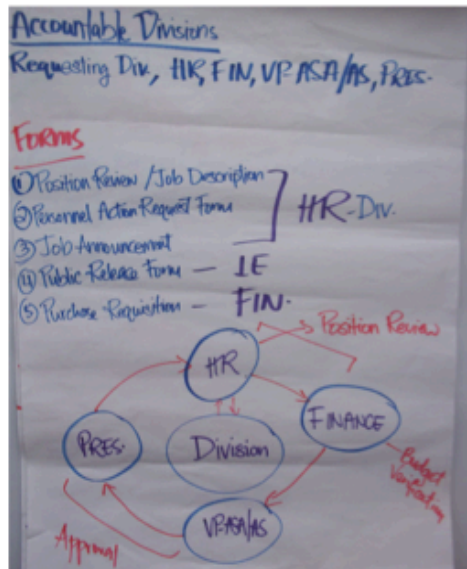 Accountable Divisions
Requesting Div, HR, FIN, VP-ASA/AS, PRES.
FORMS
① Position Review / Job Description
② Personnel Action Request Form
HR-Div.
③ Job Announcement
④ Public Release Form — IE
⑤ Purchase Requisition — FIN.
Position Review
HR
FINANCE
PRES.
Division
Budget
Verification
VP-ASA/AS
Approval